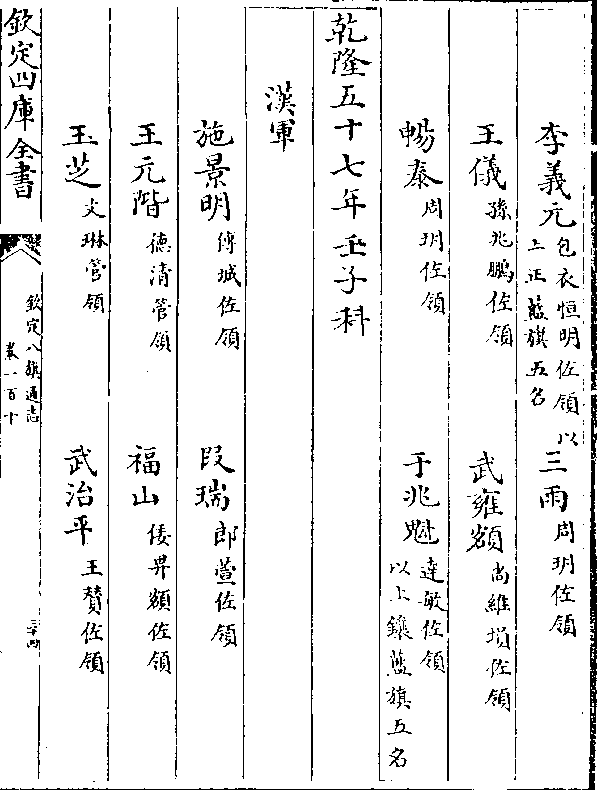 李義元包衣恒明佐領以上正藍旗五名　三雨周玥佐領
王儀孫兆鵬佐領　武雍額尚維塤佐領
暢泰周玥佐領　于兆魁達敏佐領以上鑲藍旗五名
乾隆五十七年壬子科
漢軍
施景明傅珹佐領　段瑞郎萱佐領
王元階德清管領　福山倭昇額佐領
玉芝文琳管領　武治平王贊佐領
欽定四庫全書
欽定八旗通志
卷一百十
三十四